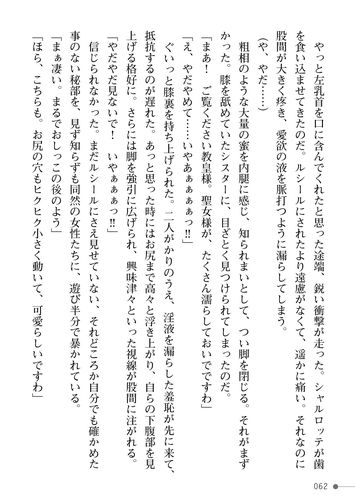 やっと左乳首を口に含んでくれたと思った途端、鋭い衝撃が走った。シャルロッテが歯
を食い込ませてきたのだ。ルシールにされたより遠慮がなくて、遥かに痛い。それなのに
股間が大きく疼き、愛欲の液を脈打つように漏らしてしまう。
（や、やだ……）
　粗相のような大量の蜜を内腿に感じ、知られまいとして、つい脚を閉じる。それがまず
かった。膝を舐めていたシスターに、目ざとく見つけられてしまったのだ。
「まあ！　ご覧ください教皇様。聖女様が、たくさん濡らしておいでですわ」
「え、やだやめて……いやあぁぁぁっ!!」
　ぐいっと膝裏を持ち上げられた。二人がかりのうえ、淫液を漏らした羞恥が先に来て、
抵抗するのが遅れた。あっと思った時にはお尻まで高々と浮き上がり、自らの下腹部を見
上げる格好に。さらには脚を強引に広げられ、興味津々といった視線が股間に注がれる。
「やだやだ見ないで！　いやぁぁぁっ!!」
　信じられなかった。まだルシールにさえ見せていない、それどころか自分でも確かめた
事のない秘部を、見ず知らずも同然の女性たちに、遊び半分で暴かれている。
「まぁ凄い。まるでおしっこの後のよう」
「ほら、こちらも。お尻の穴もヒクヒク小さく動いて、可愛らしいですわ」
062